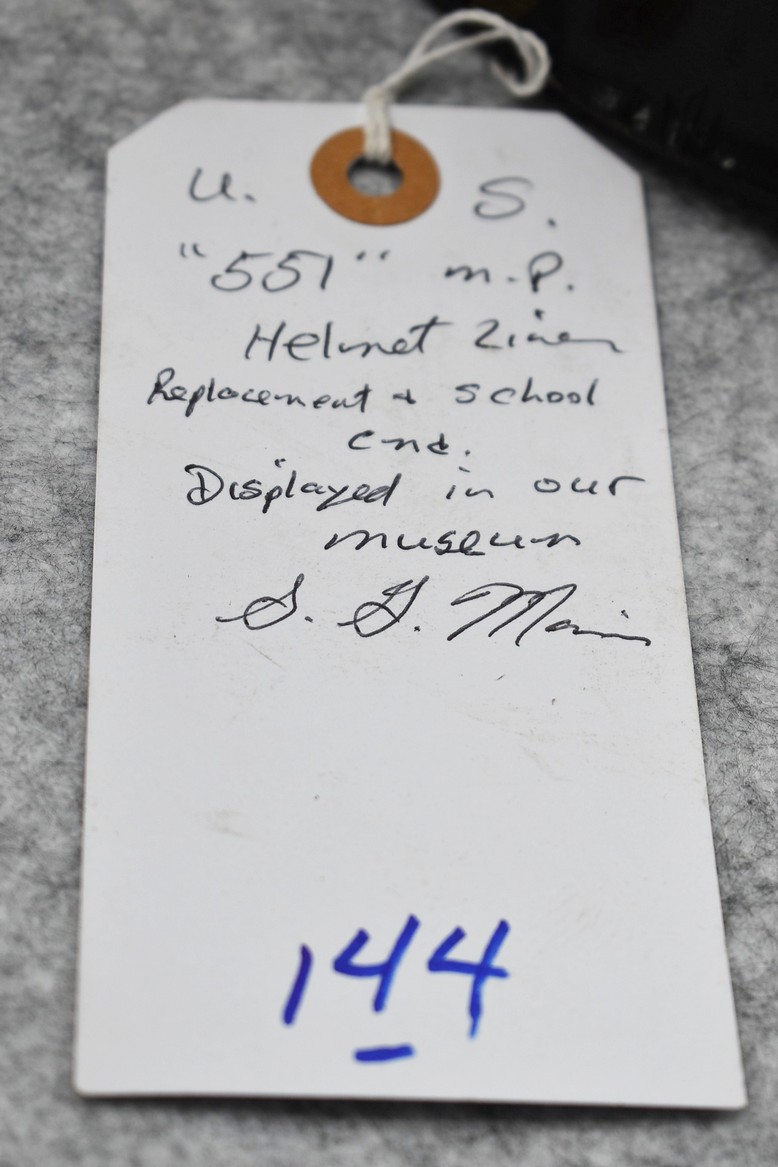 U. S.
"551" m.P.
Helmet Liner
Replacement & school
cmd.
Displayed in our
museum
S. G.
144